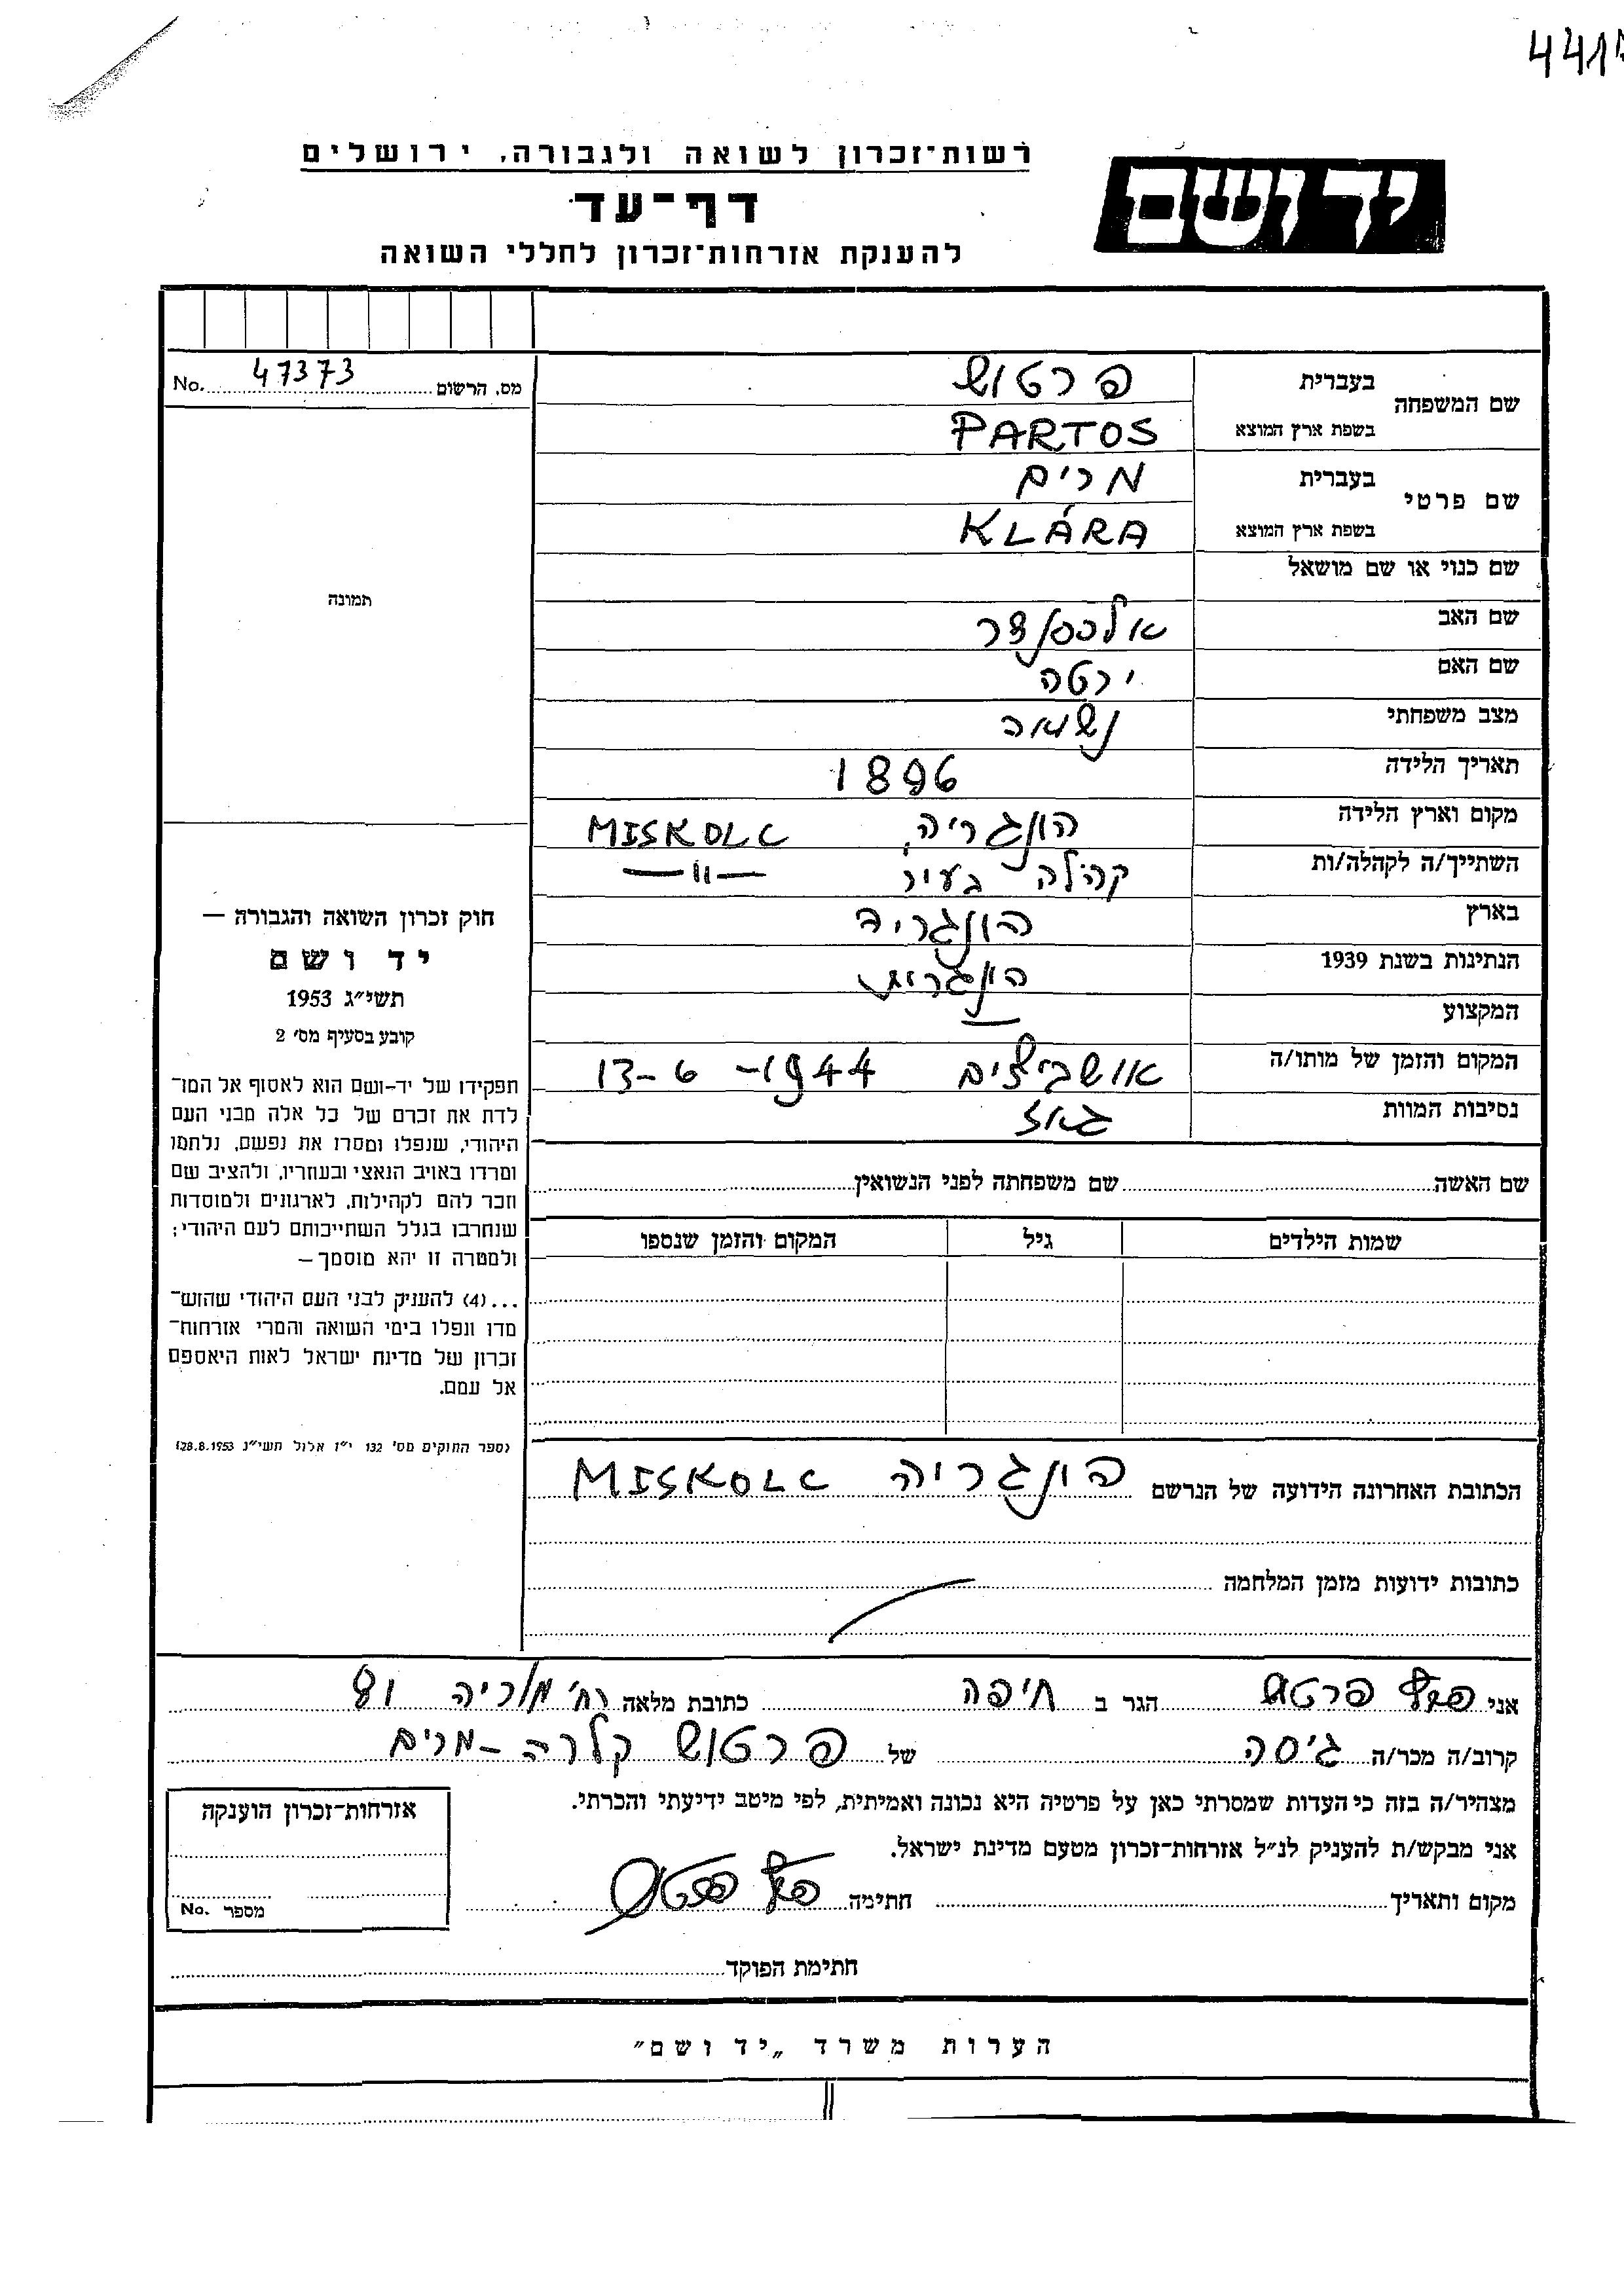 441
רשות־זכרון לשואה ולגבורה, ירושלים
יד ושם
דף־עד
להענקת אזרחות־זכרון לחללי השואה
מס. הרשום 47373 No.
שם המשפחה בעברית פרטוש
בשפת ארץ המוצא PARTOS
שם פרטי בעברית מרים
בשפת ארץ המוצא KLÁRA
שם כנוי או שם מושאל
שם האב אלכסנדר
שם האם ירטה
מצב משפחתי נשואה
תאריך הלידה 1896
מקום וארץ הלידה הונגריה, MISKOLC
השתייך/ה לקהלה/ות קהלה בעיר —"—
בארץ הונגריה
הנתינות בשנת 1939 הונגרית
המקצוע —
המקום והזמן של מותו/ה אושביצים 13-6-1944
נסיבות המוות גאז
תמונה
חוק זכרון השואה והגבורה —
יד ושם
תשי״ג 1953
קובע בסעיף מס׳ 2
תפקידו של יד-ושם הוא לאסוף אל המו־
לדת את זכרם של כל אלה מבני העם
היהודי, שנפלו ומסרו את נפשם, נלחמו
ומרדו באויב הנאצי ובעוזריו, ולהציב שם
וזכר להם לקהילות, לארגונים ולמוסדות
שנחרבו בגלל השתייכותם לעם היהודי;
ולמטרה זו יהא מוסמך —
...(4) להעניק לבני העם היהודי שהוש־
מדו ונפלו בימי השואה והמרי אזרחות־
זכרון של מדינת ישראל לאות היאספם
אל עמם.
(ספר החוקים מס׳ 132 י״ז אלול תשי״ג 28.8.1953)
שם האשה שם משפחתה לפני הנשואין
שמות הילדים גיל המקום והזמן שנספו
הכתובת האחרונה הידועה של הנרשם הונגריה MISKOLC
כתובות ידועות מזמן המלחמה
אני פרטוש הגר ב חיפה כתובת מלאה רח׳ מוריה
קרוב/ה מכר/ה גיסה של פרטוש קלרה-מרים
מצהיר/ה בזה כי העדות שמסרתי כאן על פרטיה היא נכונה ואמיתית, לפי מיטב ידיעתי והכרתי.
אני מבקש/ת להעניק לנ״ל אזרחות־זכרון מטעם מדינת ישראל.
מקום ותאריך חתימה
אזרחות־זכרון הוענקה
מספר No.
חתימת הפוקד
הערות משרד „יד ושם״